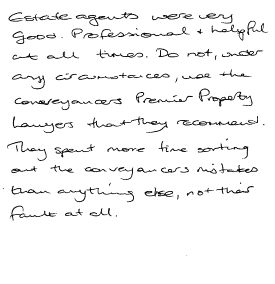 Estate agents were very
Good. Professional + helpful
at all times. Do not, under
any circumstances, use the
conveyancers Premier Property
Lawyers that they recommend.
They spent more time sorting
out the conveyancers mistakes
than anything else, not their
fault at all.